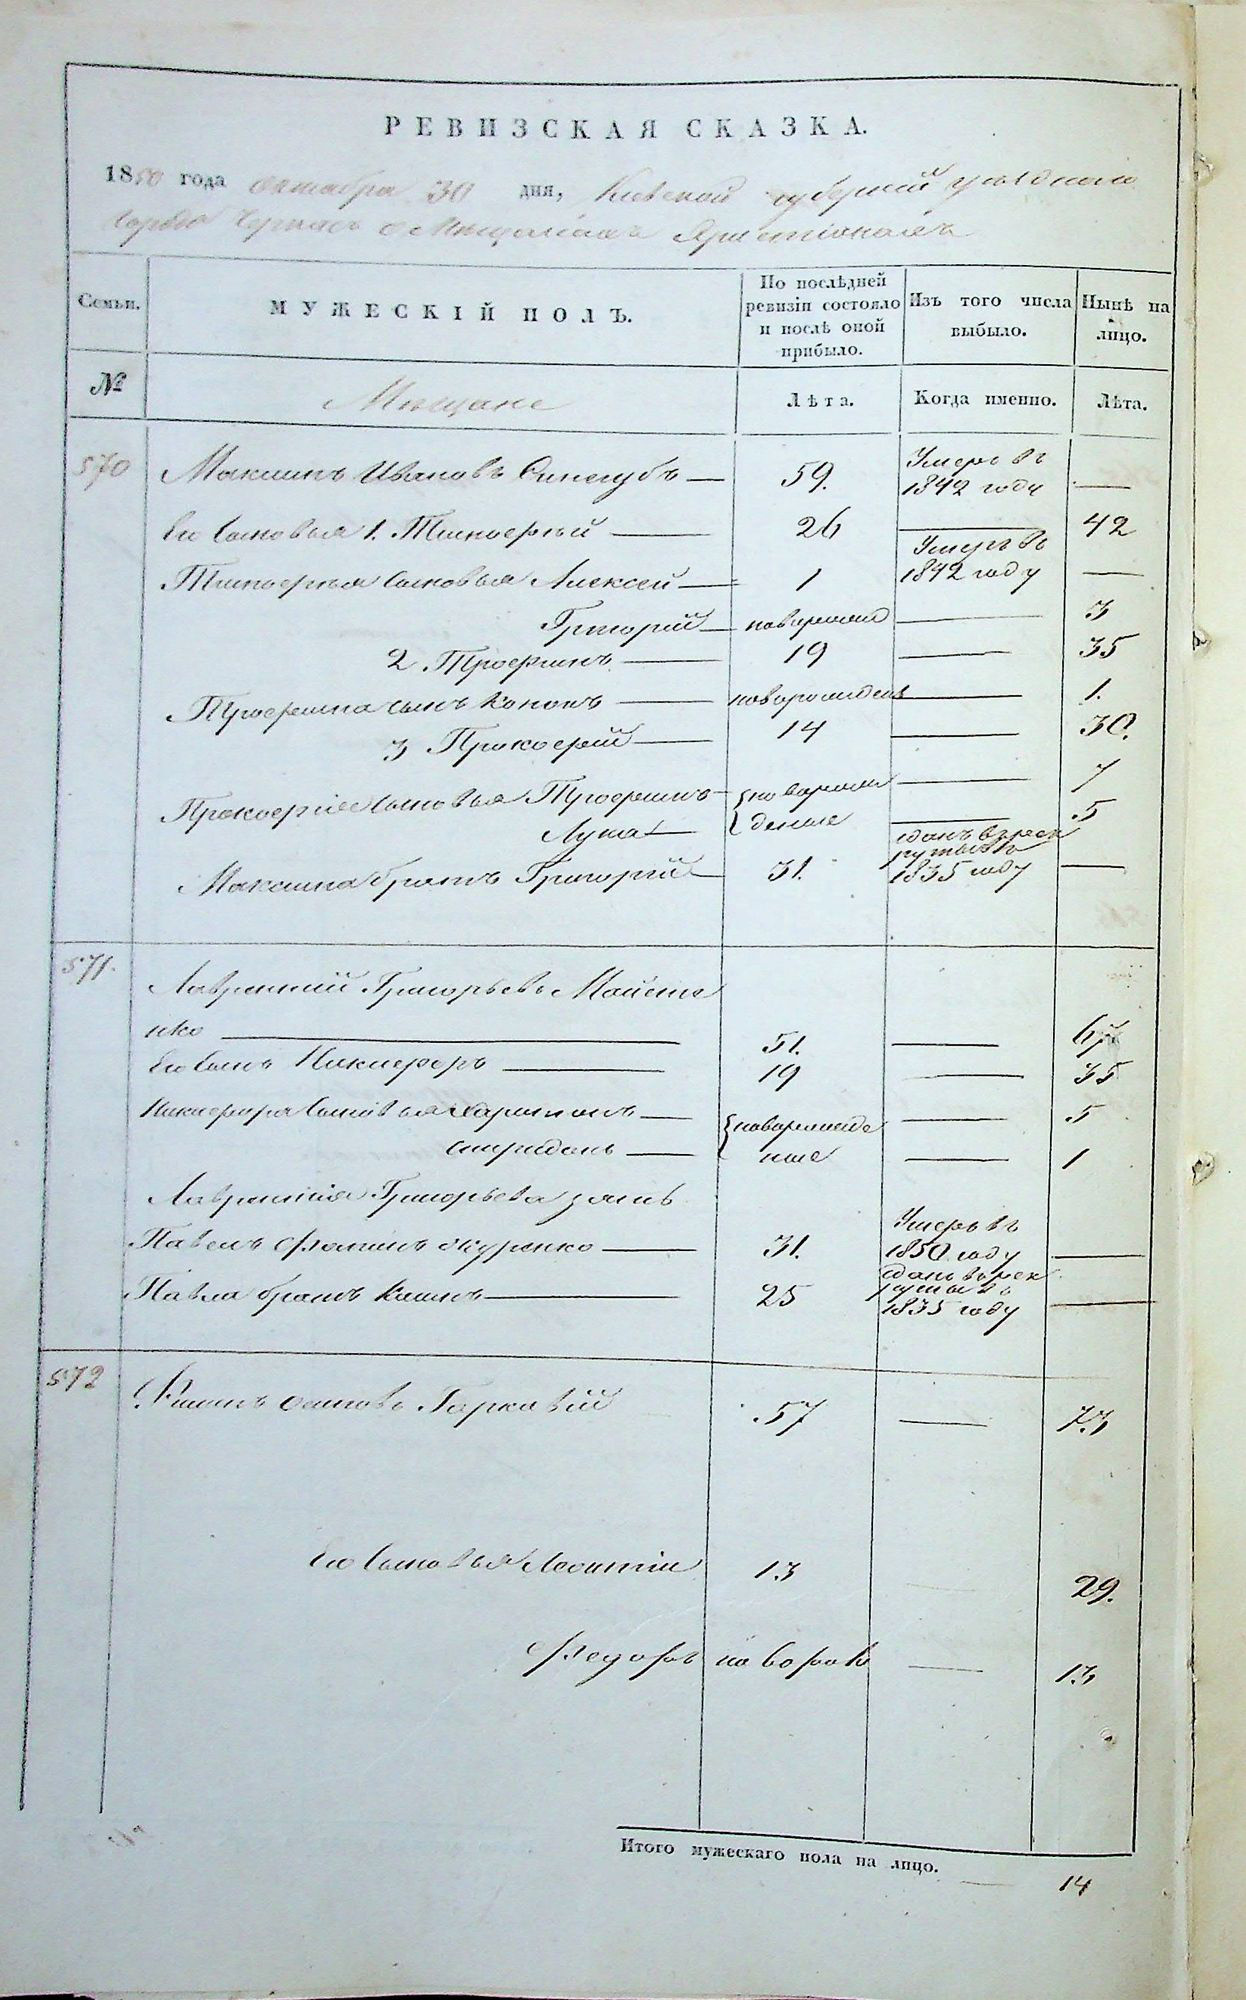 РЕВИЗСКАЯ СКАЗКА.
1850 года октября 30 дня, Киевской губерний уездного
города Черкас о Мещанах Християнах
Семьи. МУЖЕСКІЙ ПОЛЪ. По послѣдней ревизіи состояло и послѣ оной прибыло. Изъ того числа выбыло. Нынѣ на лицо.
№ Мещане Лѣта. Когда именно. Лѣта.
570 Максимъ Ивановъ Синегубъ — 59. Умеръ въ 1842 году —
Его Сыновья 1. Тимоѳей — 26 — 42
Тимоѳея Сыновья Алексей — 1 Умеръ въ 1842 году —
Григорий — новорожд — 3
2 Трофимъ — 19 — 35
Трофима сынъ Кононъ — новорожденъ — 1.
3 Прокофий — 14 — 30.
Прокофия Сыновья Трофимъ — {новорож — 7
Лука — {денные — 5
Максима братъ Григорий — 31. сданъ врек руты въ 1835 году —
571. Лаврентий Григорьевъ Майсте
нко — 51. — 67
Его Сынъ Никифоръ — 19 — 35
Никифора Сыновья Харитонъ — {новорожде — 5
Спиридонъ — нные — 1
Лаврентия Григорьева зять
Павелъ Фоминъ — 31. Умеръ въ 1850 году —
Павла братъ — 25 сданъ врек руты въ 1835 году —
572 осиповъ Горкавый 57 — 73
Его Сыновья Леонтий 13 — 29.
Федоръ новорож — 13
Итого мужескаго пола на лицо. — 14